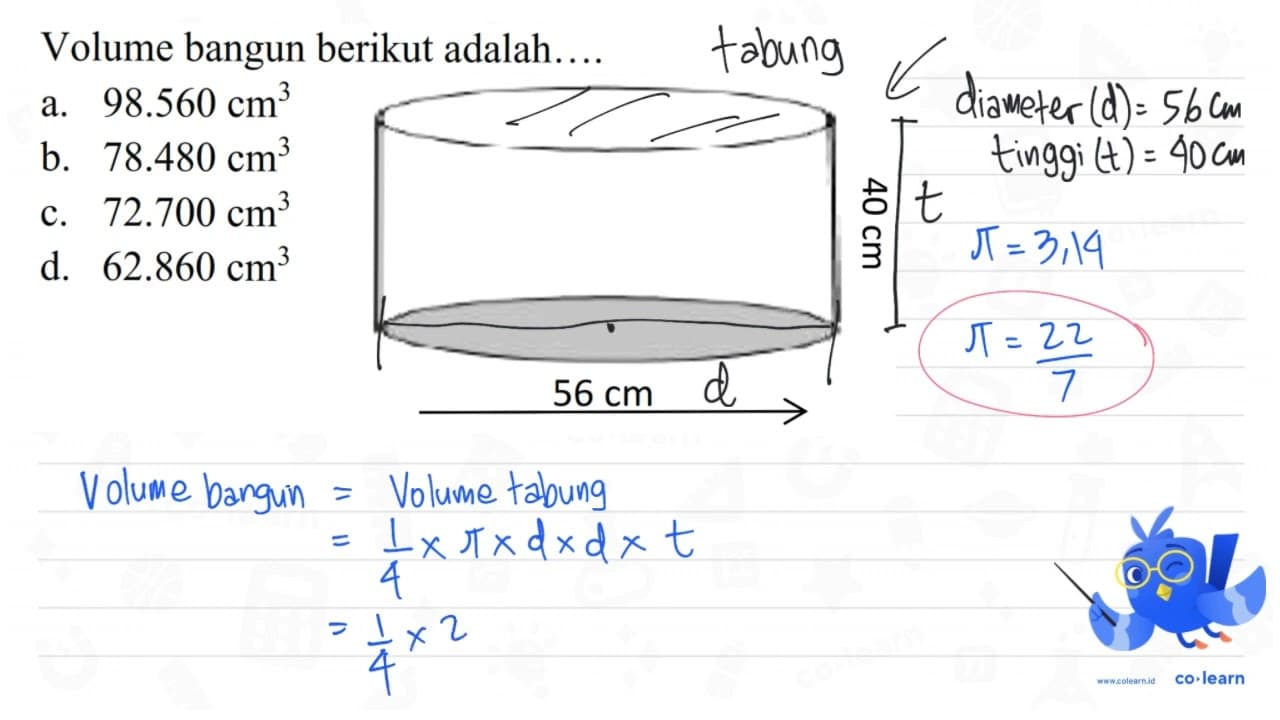 Volume bangun berikut adalah....
a. 98.560 cm³
b. 78.480 cm³
c. 72.700 cm³
d. 62.860 cm³
tabung
diameter (d) = 56 cm
tinggi (t) = 40 cm
40 cm
t
π = 3,14
π = 22/7
56 cm
d
Volume bangun = Volume tabung
= 1/4 × π × d × d × t
= 1/4 × 2
www.colearn.id
co·learn